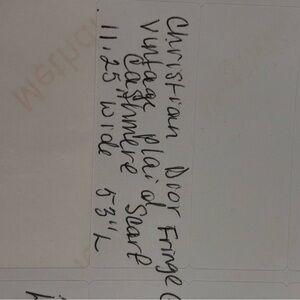 Christian Dior Fringe
Vintage Plaid
Cashmere Scarf
11.25" wide 53"L